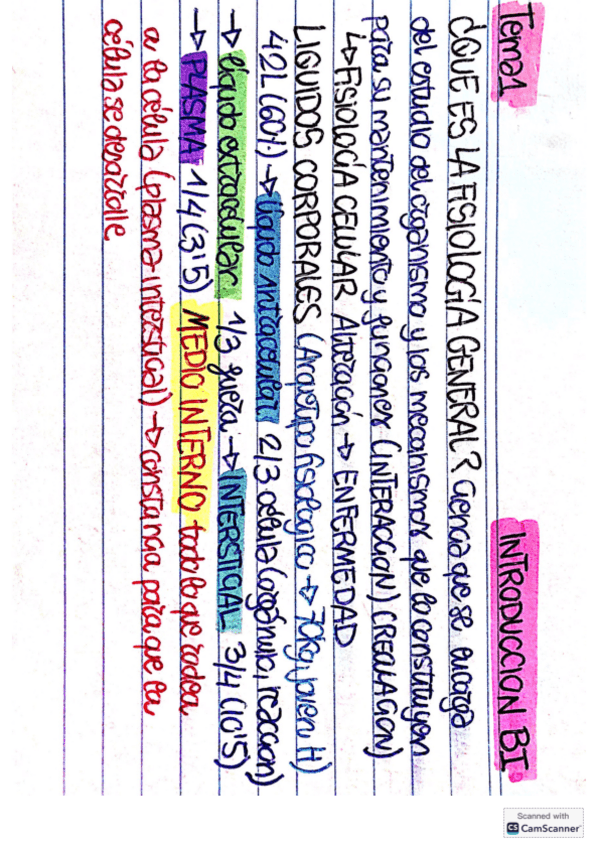 Tema 1 INTRODUCCION BI
¿QUE ES LA FISIOLOGÍA GENERAL? Ciencia que se encarga
del estudio del organismo y los mecanismos que lo constituyen
para su mantenimiento y funciones (INTERACCION) (REGULACION)
↳ FISIOLOGÍA CELULAR Alteración → ENFERMEDAD
LIQUIDOS CORPORALES (Arquetipo fisiologico → 70kg, joven, H)
42L (60%) → líquido intracelular 2/3 célula (orgánulo, reaccion)
→ líquido extracelular 1/3 fuera → INTERSTICIAL 3/4 (10'5)
→ PLASMA 1/4 (3'5) MEDIO INTERNO todo lo que rodea
a la célula (plasma-intersticial) → constancia para que la
célula se desarrolle
Scanned with
CS CamScanner